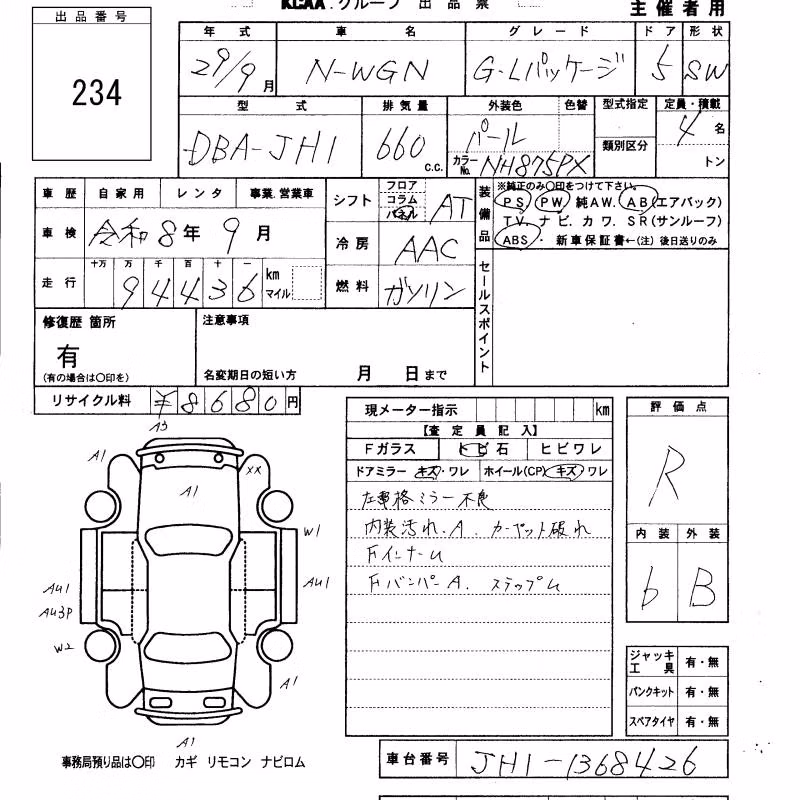 KCAA.グループ 出品票
主催者用
出品番号
234
年式 車名 グレード ドア 形状
29/9月 N-WGN G・Lパッケージ 5 SW
型式 排気量 外装色 色替 型式指定 定員・積載
DBA-JH1 660 c.c. パール 類別区分 4名
カラーNo. NH875PX トン
車歴 自家用 レンタ 事業.営業車
車検 令和8年9月
十万 万 千 百 十 一
走行 94436 km マイル
シフト フロア コラム パネル AT
冷房 AAC
燃料 ガソリン
装備品
※純正のみ〇印をつけて下さい。
PS PW 純AW. AB(エアバック)
TV. ナビ. カワ. SR(サンルーフ)
ABS・ 新車保証書←(注)後日送りのみ
セールスポイント
修復歴 箇所
有
(有の場合は〇印を)
注意事項
名変期日の短い方 月 日まで
リサイクル料 ¥8680円
現メーター指示 km
【査定員記入】
Fガラス トビ石 ヒビワレ
ドアミラー キズ・ワレ ホイール(CP) キズ ワレ
左電格ミラー不良
内装汚れ.A. カーペット破れ
Fインナーム
FバンパーA. ステップム
評価点
R
内装 外装
b B
ジャッキ工具 有・無
パンクキット 有・無
スペアタイヤ 有・無
A3
A1
XX
A1
W1
AU1
AU1
AU3P
W2
A1
A1
事務局預り品は〇印 カギ リモコン ナビロム
車台番号 JH1-1368426